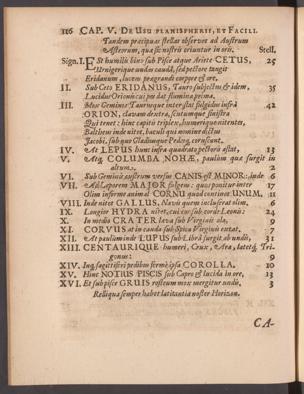 116 CAP. V. DE USU PLANISPHERII, ET FACILI
Tandem præcipuas stellas observet ad Austrum
Astrorum, quæ sic nostris oriuntur in oris. Stell.
Sign. I. Est humili hinc sub Pisce atque Ariete CETUS, 25
Urnigerique undas caudâ, sed pectore tangit
Eridanum, lucem prægrandi corpore & ore.
II. Sub Ceto ERIDANUS, Tauro subjectus & idem, 35
Lucidus Orioni cui pes dat flumina prima.
III. Mox Geminos Taurumque inter stat fulgidus infrà 42
ORION, clavam dextra, scutumque sinistra
Qui tenet: hinc capiti triplex, humerique nitentes,
Baltheus inde nitet, baculi qui nomine dictus
Jacobi, sub quo Gladiumque Pedesq; coruscant.
IV. At LEPUS hunc infra quadrato pectoris astat, 13
V. Atq; COLUMBA NOHÆ, paulum qua surgit in
altum. 2
VI. Sub Geminis austrum versus CANIS est MINOR: inde 6
VII. Ad Leporem MAJOR fulgens: quos ponitur inter 17
VIII. Inde nitet GALLUS, Navis quem inclusit olim. 6
IX. Longior HYDRA nitet, cui cor sub corde Leonis: 24
X. In medio CRATER læva sub Virginis ala, 9
XI. CORVUS at in cauda sub Spica Virginis extat. 7
XII. At paulum inde LUPUS sub Librâ surgit ab undis, 31
XIII. CENTAURIQUE humeri, Crux, Ara, latetq; Tri-
gonus: 9
XIV. Inq; sagittiferi pedibus formosa ipsa COROLLA. 10
XV. Hinc NOTIUS PISCIS sub Capro & lucida in ore, 13
XVI. Et sub pisce GRUIS rostrum mox mergitur undis, 3
Reliqua semper habet latitantia noster Horizon.
CA-